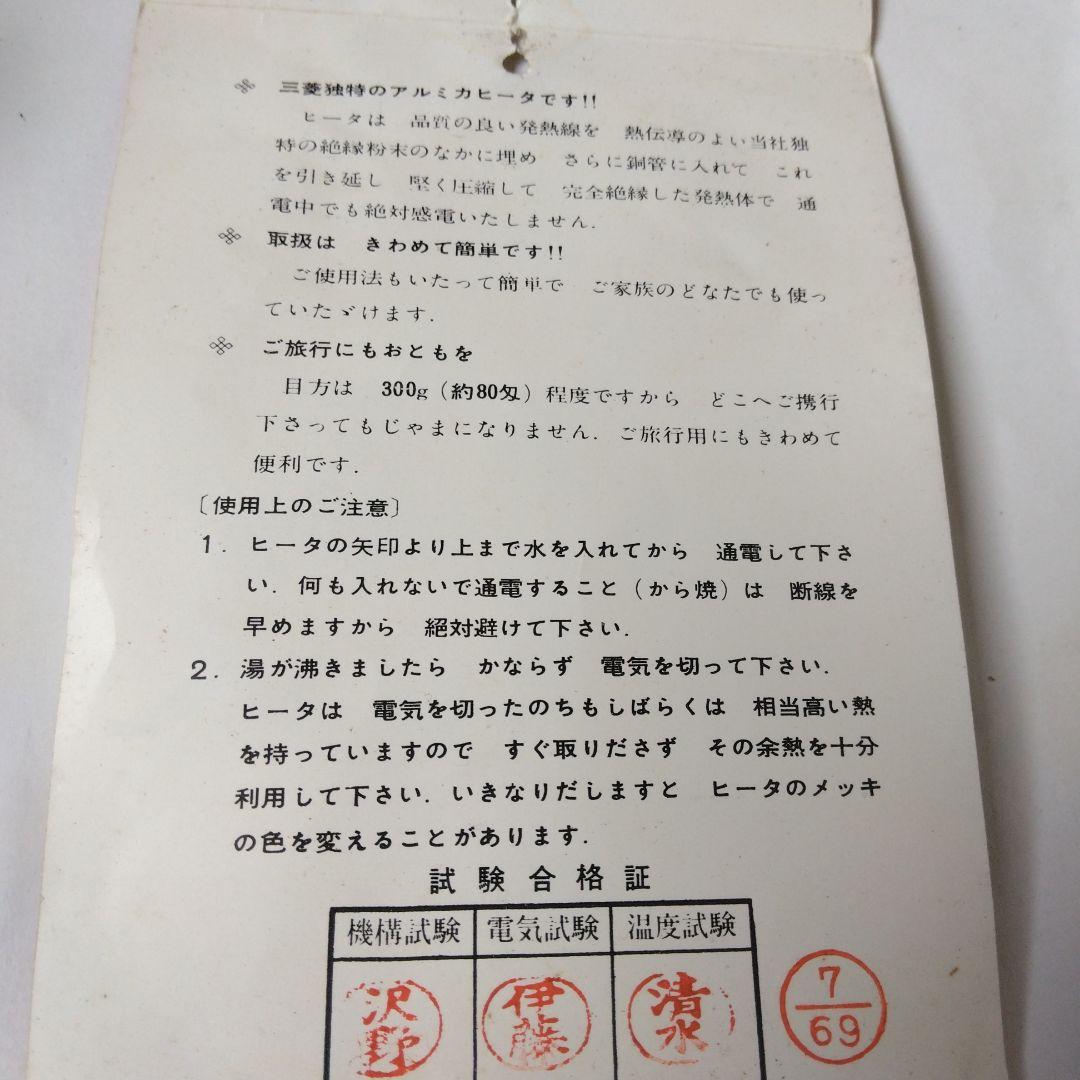 ※ 三菱独特のアルミカヒータです!!
ヒータは 品質の良い発熱線を 熱伝導のよい当社独
特の絶縁粉末のなかに埋め さらに銅管に入れて これ
を引き延し 堅く圧縮して 完全絶縁した発熱体で 通
電中でも絶対感電いたしません.
※ 取扱は きわめて簡単です!!
ご使用法もいたって簡単で ご家族のどなたでも使っ
ていたゞけます.
※ ご旅行にもおともを
目方は 300g(約80匁)程度ですから どこへご携行
下さってもじゃまになりません. ご旅行用にもきわめて
便利です.
〔使用上のご注意〕
1. ヒータの矢印より上まで水を入れてから 通電して下さ
い. 何も入れないで通電すること(から焼)は 断線を
早めますから 絶対避けて下さい.
2. 湯が沸きましたら かならず 電気を切って下さい.
ヒータは 電気を切ったのちもしばらくは 相当高い熱
を持っていますので すぐ取りださず その余熱を十分
利用して下さい. いきなりだしますと ヒータのメッキ
の色を変えることがあります.
試験合格証
機構試験 電気試験 温度試験
沢野 伊藤 清水 7/69